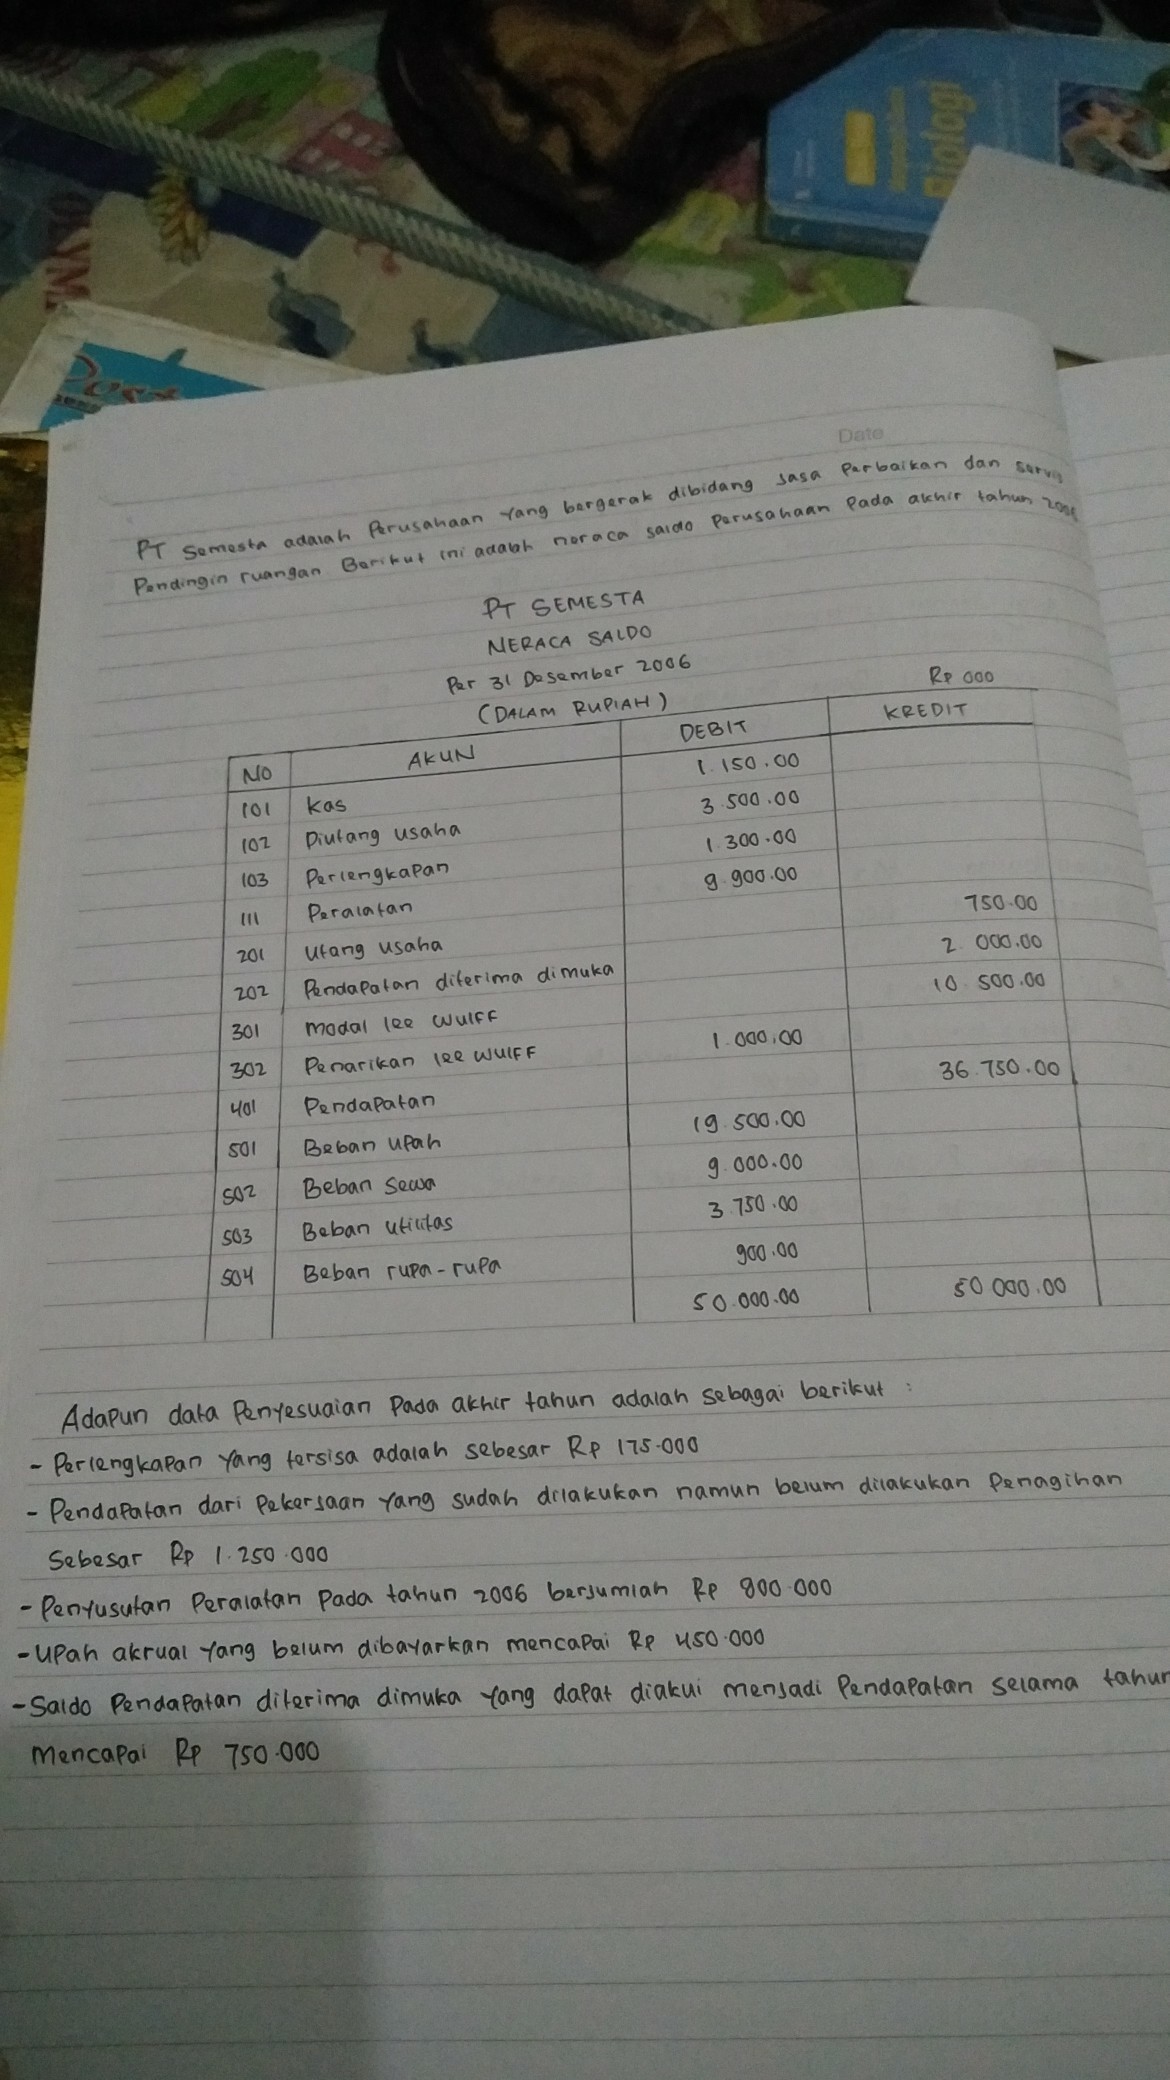 Biologi
Date
PT Semesta adalah Perusahaan yang bergerak dibidang jasa Perbaikan dan servis
Pendingin ruangan Berikut ini adalah neraca saldo Perusahaan Pada akhir tahun 2006
PT SEMESTA
NERACA SALDO
Per 31 Desember 2006
(DALAM RUPIAH)
Rp 000
NO AKUN DEBIT KREDIT
101 Kas 1.150.00
102 Piutang usaha 3.500.00
103 Perlengkapan 1.300.00
111 Peralatan 9.900.00
201 Utang usaha 750.00
202 Pendapatan diterima dimuka 2.000.00
301 Modal lee WulFF 10.500.00
302 Penarikan lee WulFF 1.000,00
401 Pendapatan 36.750.00
501 Beban upah 19.500.00
502 Beban sewa 9.000.00
503 Beban utilitas 3.750.00
504 Beban rupa-rupa 900.00
50.000.00 50 000.00
Adapun data Penyesuaian Pada akhir tahun adalah sebagai berikut :
- Perlengkapan yang tersisa adalah sebesar Rp 175.000
- Pendapatan dari Pekerjaan yang sudah dilakukan namun belum dilakukan Penagihan
Sebesar Rp 1.250.000
- Penyusutan Peralatan Pada tahun 2006 berjumlah Rp 800.000
- Upah akrual yang belum dibayarkan mencapai Rp 450.000
- Saldo Pendapatan diterima dimuka yang dapat diakui menjadi Pendapatan selama tahun
Mencapai Rp 750.000